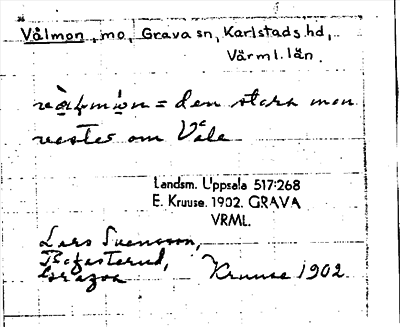 Vålmon, mo, Grava sn, Karlstads hd,
Värml. län.
= den stora mon
vester om Våle
Landsm. Uppsala 517:268
E. Kruuse. 1902. GRAVA
VRML.
Lars Svensson,
Kruuse 1902.